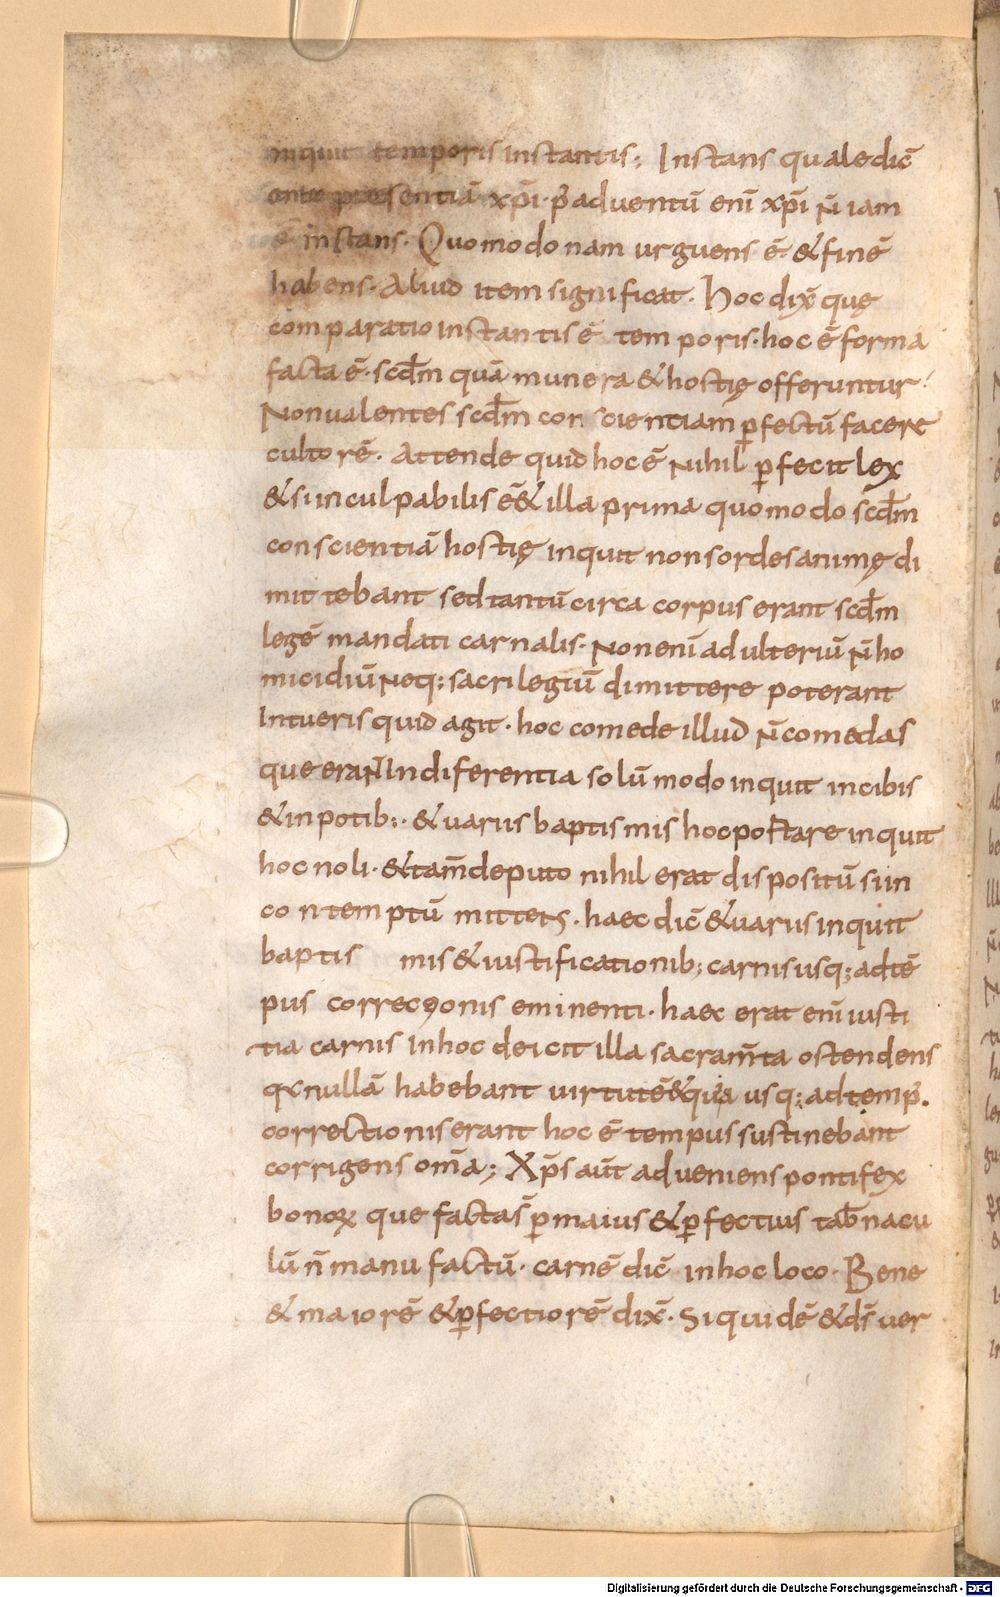 inquit temporis instantis; Instans quale dic̄
ante presentiā xp̄i· p᷒ aduentū enī xp̄i n̄ iam
ē instans· Quomodo nam urguens ē· & finē
habens· Aliud item significat· Hoc dix̄ quę
comparatio instantis ē temporis· hoc ē forma
facta ē· scd̄m quā munera & hostię offeruntur·
Non ualentes scd̄m con scientiam ꝑfectū facere
cultorē· Attende quid hoc ē Nihil ꝑfecit lex
& si inculpabilis ē & illa prima quomodo scd̄m
conscientiā hostię inquit non sordes animę di
mittebant sed tantū circa corpus erant scd̄m
legē mandati carnalis· Non enī adulteriū n̄ ho
micidiū neq; sacrilegiū dimittere poterant
Intueris quid agit· hoc comede illud n̄ comedas
que eraN̄ Indiferentia solū modo inquit in cibis
& in potib;· & uariis baptismis hoc poftare inquit
hoc noli· & tam̄ deputo nihil erat dispositū si in
contemptū mitteris· haec dic̄ & uariis inquit
baptis mis & iustificationib; carnis usq; ad tē
pus correcɔonis eminenti· haec erat enī iusti
tia carnis In hoc deicit illa sacram̄ta ostendens
qx nullā habebant uirtutē & quia usq; ad temp᷒.
correctionis erant hoc ē tempus sustinebant
corrigens om̄a; Xp̄s aut̄ adueniens pontifex
bonoꝝ que factas̄ ꝑ maius & ꝑfectius tab̄nacu
lū n̄ manu factū· carnē dic̄ in hoc loco· Bene
& maiorē & ꝑfectiorē dix̄· Siquidē & d̄s uer
Digitalisierung gefördert durch die Deutsche Forschungsgemeinschaft - DFG